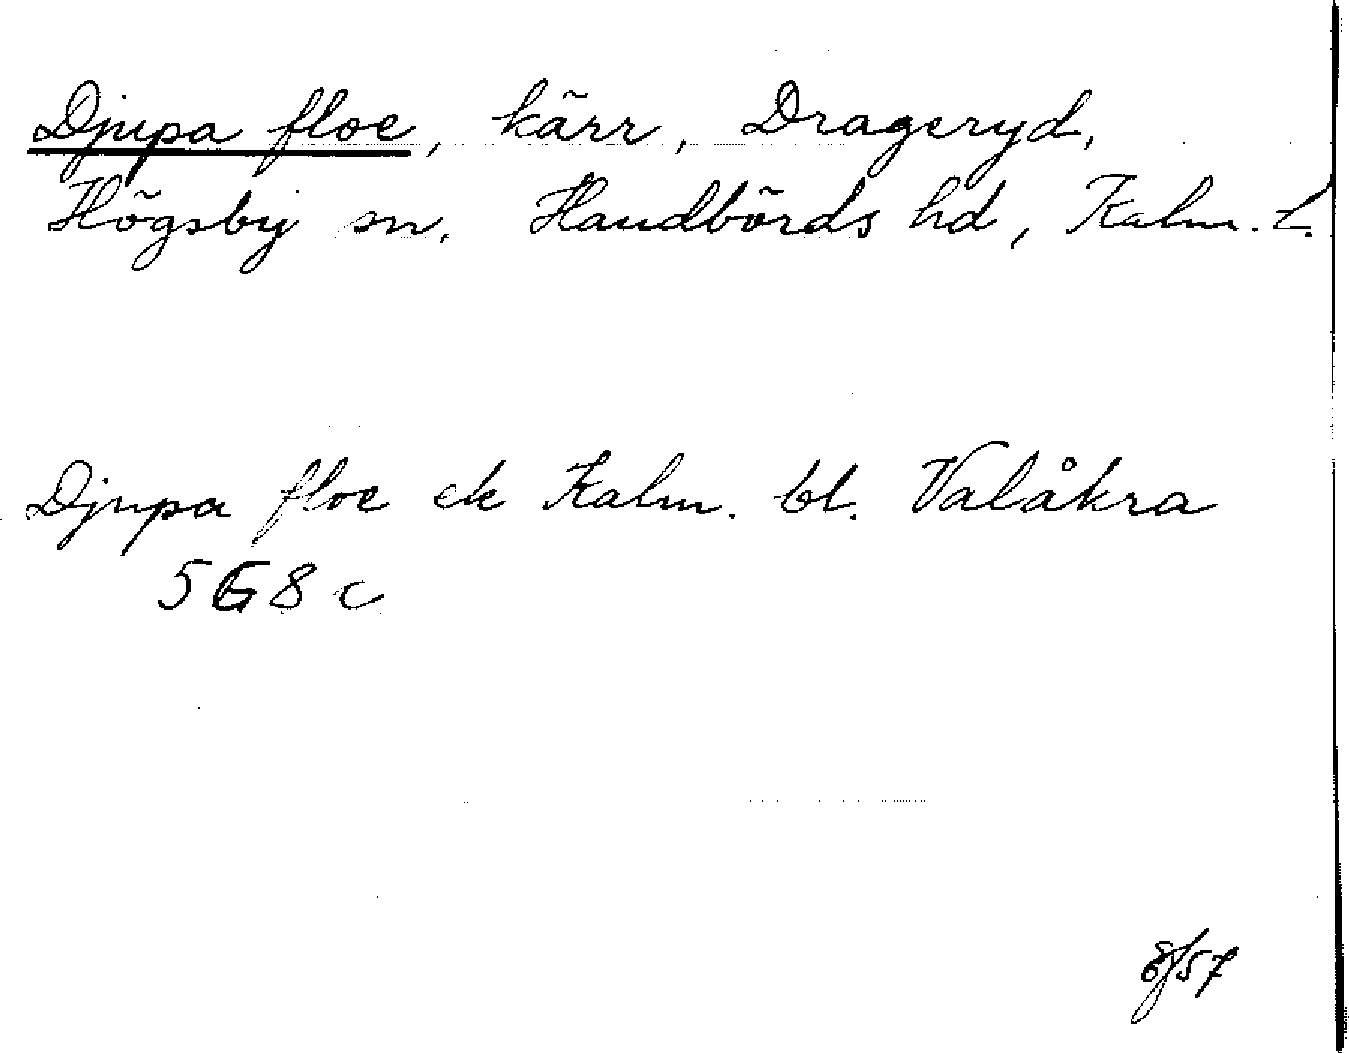 Djupa floe, kärr, Drageryd,
Högsby sn. Handbörds hd, Kalm. l.
Djupa floe ek Kalm. bl. Valåkra
5G8c
8/57